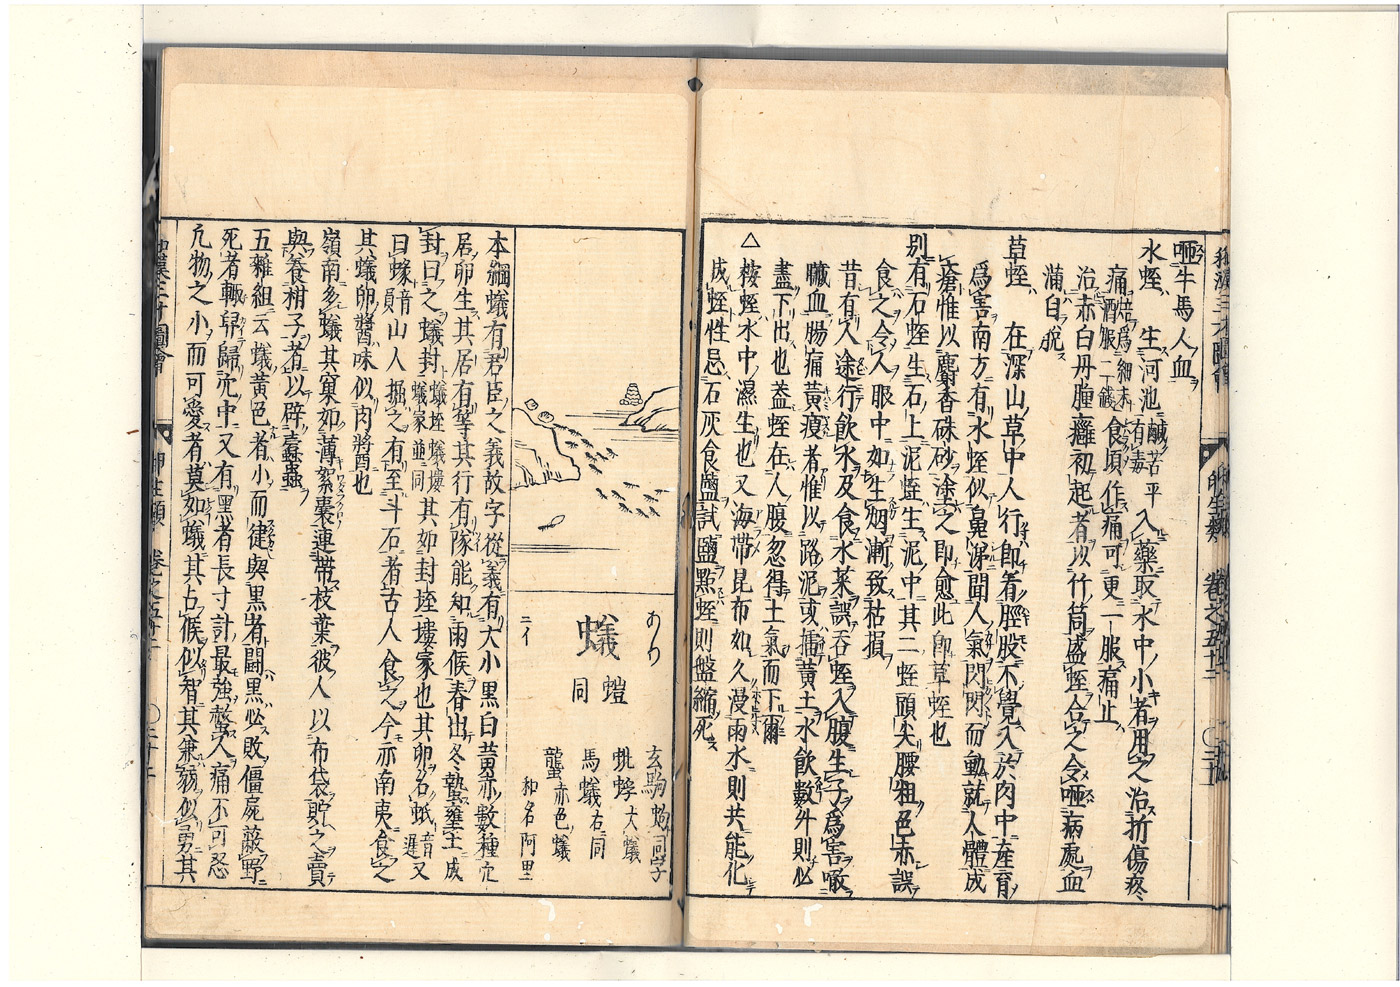 咂牛馬人血
水蛭 生河池 鹹苦平有毒 入藥取水中小者用之治折傷疼
痛 焙爲細末酒服二錢 食頃作痛可更一服痛止
治赤白丹腫癰初起者以竹筒盛蛭合之令咂病處血
滿自脫
草蛭 在深山草中人行即着脛股不覺入於肉中產育
爲害南方有水蛭似鼻涕聞人氣閃閃而動就人體成
瘡惟以麝香硃砂塗之即愈此即草蛭也
別有石蛭生石上泥蛭生泥中其二蛭頭尖腰粗色赤誤
食之令人眼中如生烟漸致枯損
昔有人途行飲水及食水菜誤吞蛭入腹生子爲害噉
臟血腸痛黃瘦者惟以路泥或擂黃土水飲數升則必
盡下出也蓋蛭在人腹忽得土氣而下爾
△ 按蛭水中濕生也又海帶昆布如久漫雨水則共能化
成蛭性忌石灰食鹽試鹽點蛭則盤縮死
卵生類 卷之五十二
あり
蟻 螘同
玄駒 蚼同字
蚍蜉 大蟻
馬蟻 右同
蠪 赤色蟻
和名阿里
本綱蟻有君臣之義故字從義有大小黑白黃赤數種穴
居卵生其居有等其行有隊能知雨候春出冬蟄壅土成
封曰之蟻封 蟻垤蟻塿蟻冢並同 其如封垤塿冢也其卵名蚳 音遲 又
曰蝝 音 山人掘之有至斗石者古人食之今亦南夷食之
其蟻卵醬味似肉醬也
嶺南多蟻其窠如薄絮囊連帶枝葉彼人以布袋貯之賣
與養柑子者以辟蠹蟲
五雜組云蟻黃色者小而健與黑者鬪黑必敗僵屍蔽野
死者輙舁歸穴中又有黑者長寸計最強螫人痛不可忍
凢物之小而可愛者莫如蟻其占候似智其兼弱似勇其